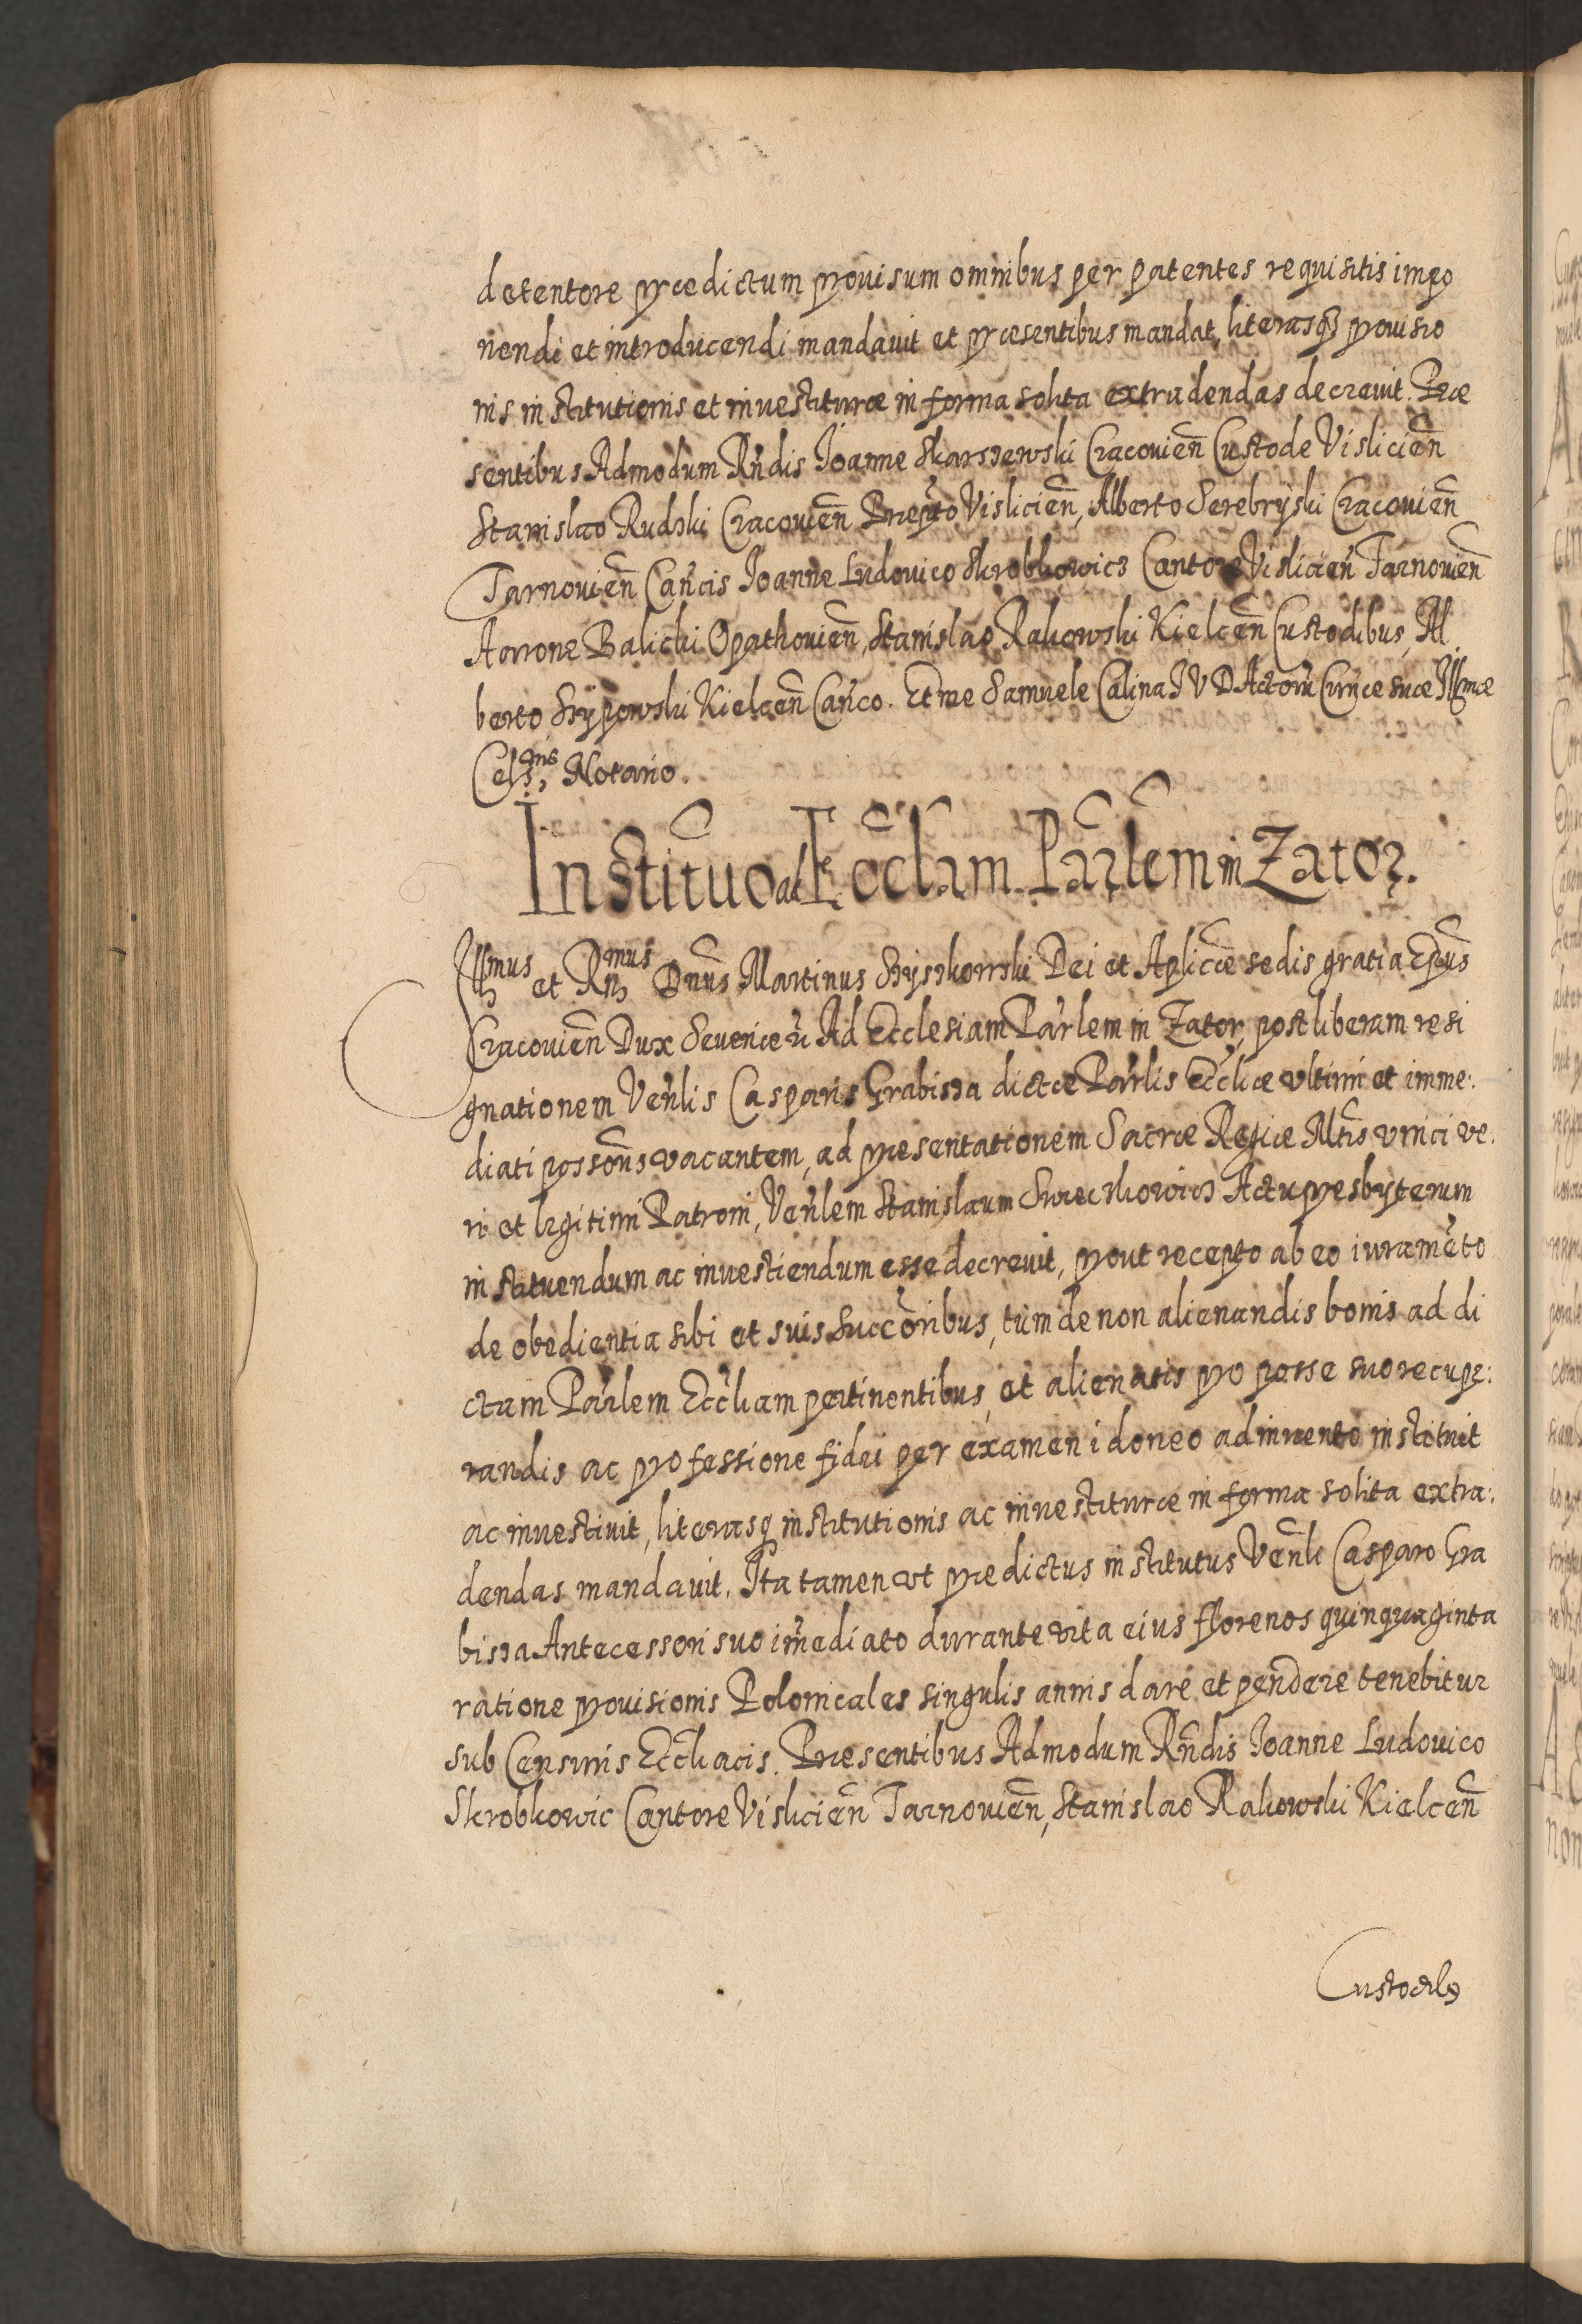 detentore prædictum prouisum omnibus per patentes requisitis impo
nendi et introducendi mandauit et præsentibus mandat, literasq3 prouisio
nis institutionis et inuestituræ in forma solita extradendas decreuit. Præ
sentibus Admodum Rñdis Joanne Skarszewski Cracouien̄ Custode Vislicien̄
Stanislao Rudzki Cracouien̄ Præpto Vislicien̄, Alberto Serebryski Cracouien̄
Tarnouien̄ Cañcis Joanne Ludouico Skrobkowicz Cantore Vislicien̄ Tarnouien̄
Aarone Balicki Opathouien̄, Stanislao Rakowski Kielcen̄ Custodibus, Al
berto Szypowski Kielcen̄ Cañco. Et me Samuele Calina J V D Actorū Curiæ suæ Illmæ
Celsnis Notario.
Institutio ad Eccl̄am Parl̄em in Zator.
Illmus et Rñmus Dñus Martinus Szyszkowski Dei et Aplicæ sedis gratia Epūs
Cracouien̄ Dux Seueriæ ū Ad Ecclesiam Parlem in Zator, post liberam resi
gnationem Ven̄lis Casparis Grabisza dictæ Parlis Eccliæ vltimi et imme:
diati possōris vacantem, ad præsentationem Sacræ Regiæ Mtis vnici ve.
ri et legitimi Patroni, Ven̄lem Stanislaum Swieczkowicz Actu præsbyterum
instituendum ac inuestiendum esse decreuit, prout recepto ab eo iuramēto
de obedientia sibi et suis Succōribus, tum de non alienandis bonis ad di
ctam Parlem Eccl̄iam pertinentibus, et alienatis pro posse suo recupe:
randis ac professione fidei per examen idoneo adinuento instituit
ac inuestiuit, literasq institutionis ac inuestituræ in forma solita extra:
dendas mandauit. Ita tamen vt prædictus institutus Ven̄li Casparo Gra
bisza Antecessori suo im̄ediato durante vita eius florenos quinquaginta
ratione prouisionis Polonicales singulis annis dare et pendere tenebitur
sub Censuris Eccliacis. Præsentibus Admodum Rñdis Joanne Ludouico
Skrobkowic Cantore Vislicien̄ Tarnouien̄, Stanislao Rakowski Kielcen̄
Custodib9